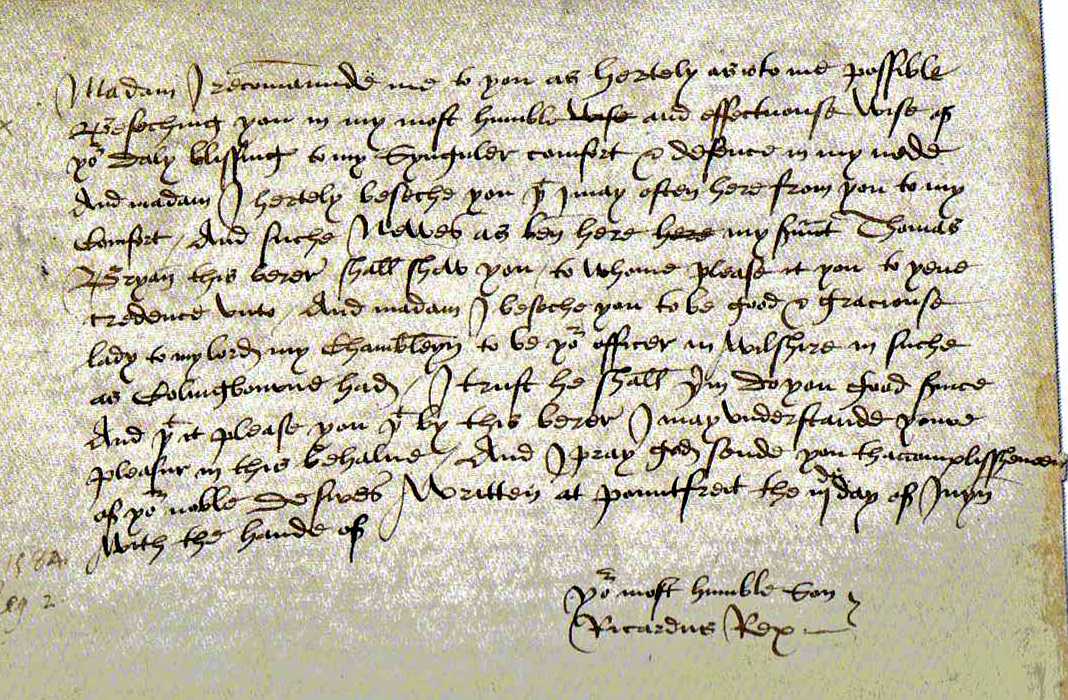 Madam I recomaunde me to you as hertely as is to me possible
Beseching you in my most humble wise and effectuouse wise of
yor daly blissing to my Synguler comfort & defence in my nede
And madam I hertely beseche you yt I may often here from you to my
Comfort / And suche Newes as ben here here my servunt Thomas
Bryan this berer shall shew you / to whome please it you to yeve
credence unto / And madam I beseche you to be good & graciouse
lady to my lord my Chamberleyn to be yor officer in Wilshire in suche
as Colingbourne had / I trust he shall yrin do you good service
And yt it please you yt by this berer I may understande youre
pleasur in this behalve / And I pray god sende you thaccomplisshement
of yor noble desires Written at Pountfreit the iijde day of Juyn
With the hande of
yor most humble Son
Ricardus Rex